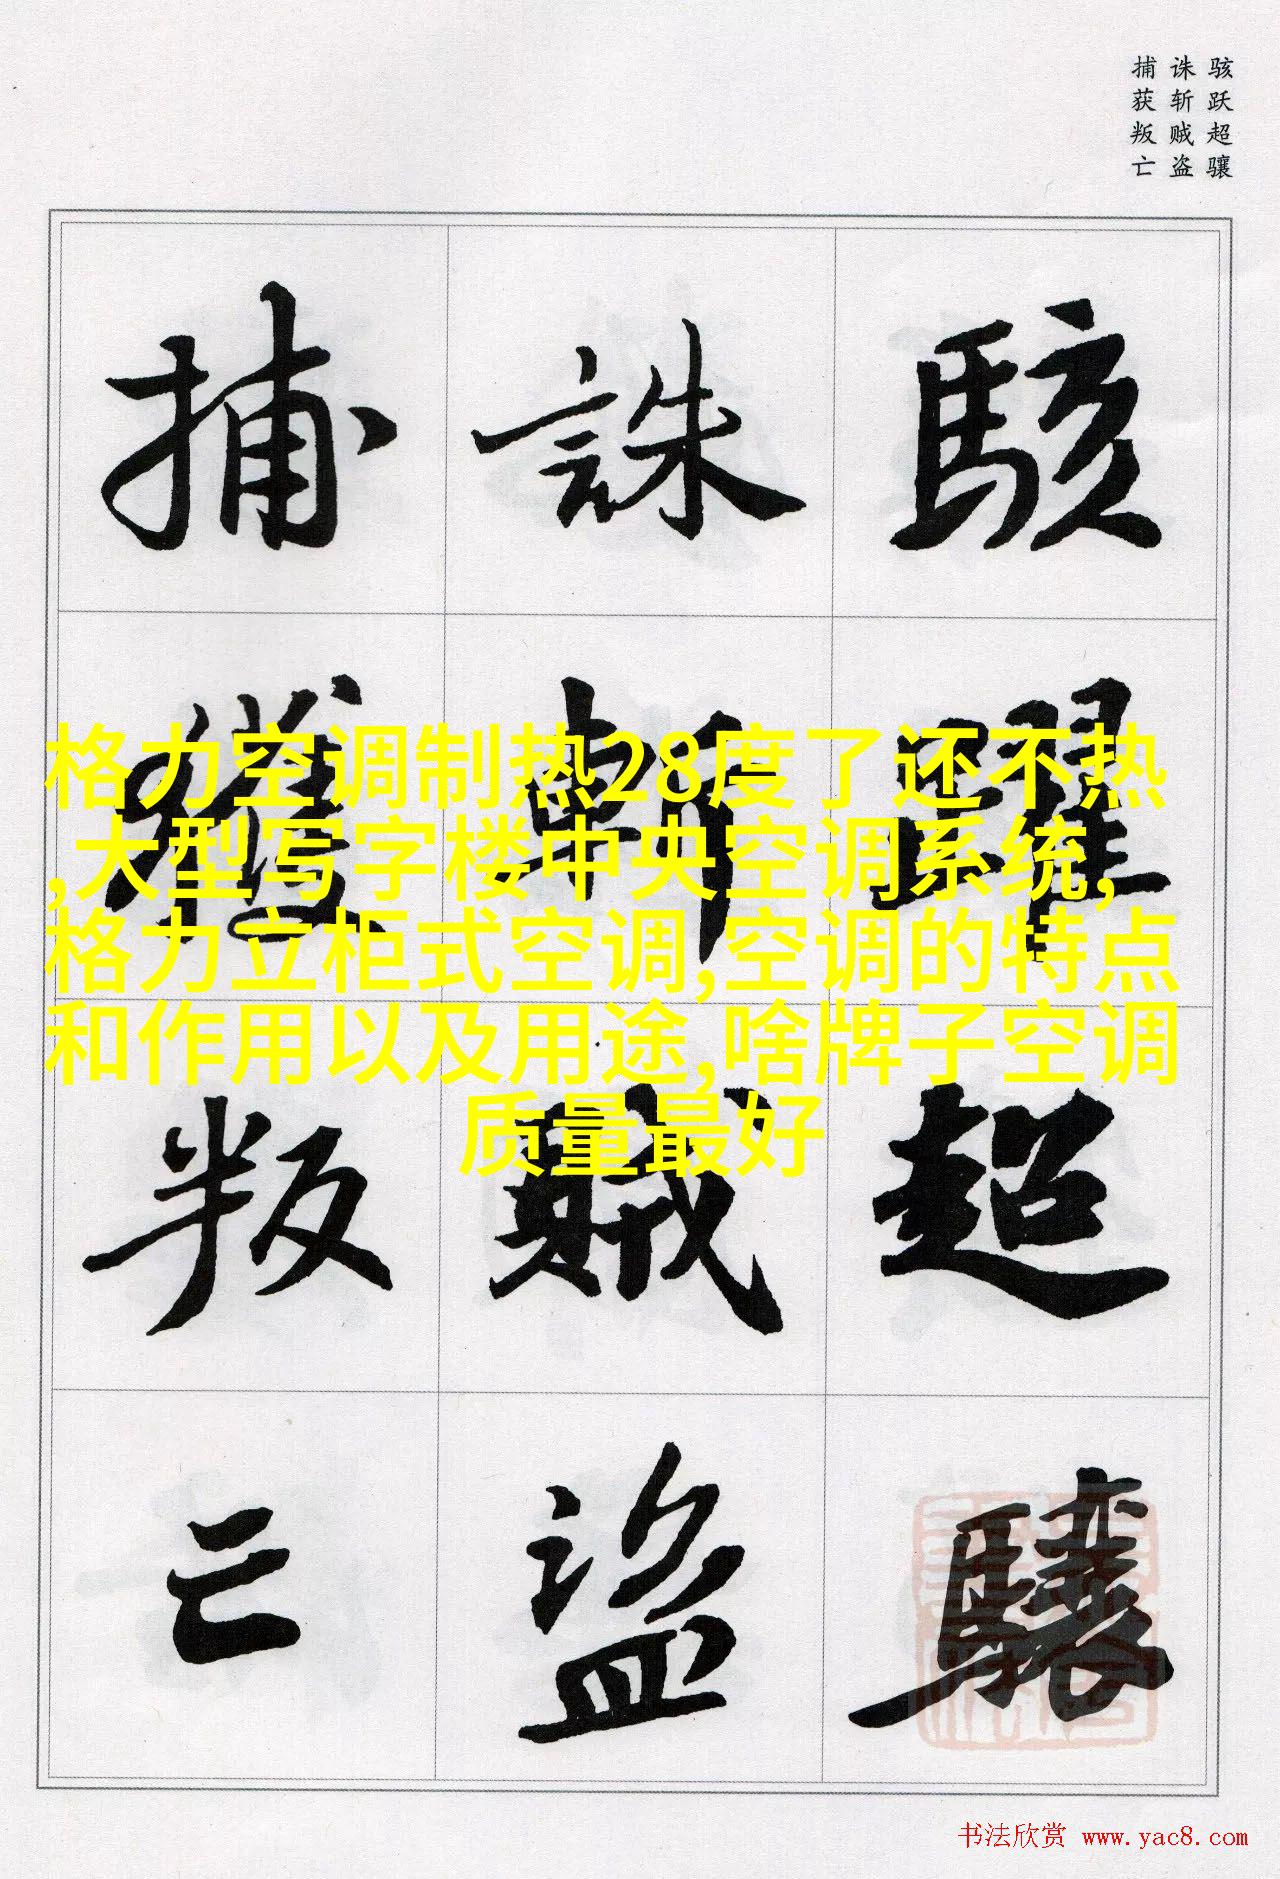 骇跃超骧
诛斩贼盗
捕获叛亡
駭躍超驤
誅斬賊盜
捕獲叛亡
格力空调制热28度了还不热
,大型写字楼中央空调系统,
格力立柜式空调,空调的特点
和作用以及用途,啥牌子空调
质量最好
书法欣赏 www.yac8.com